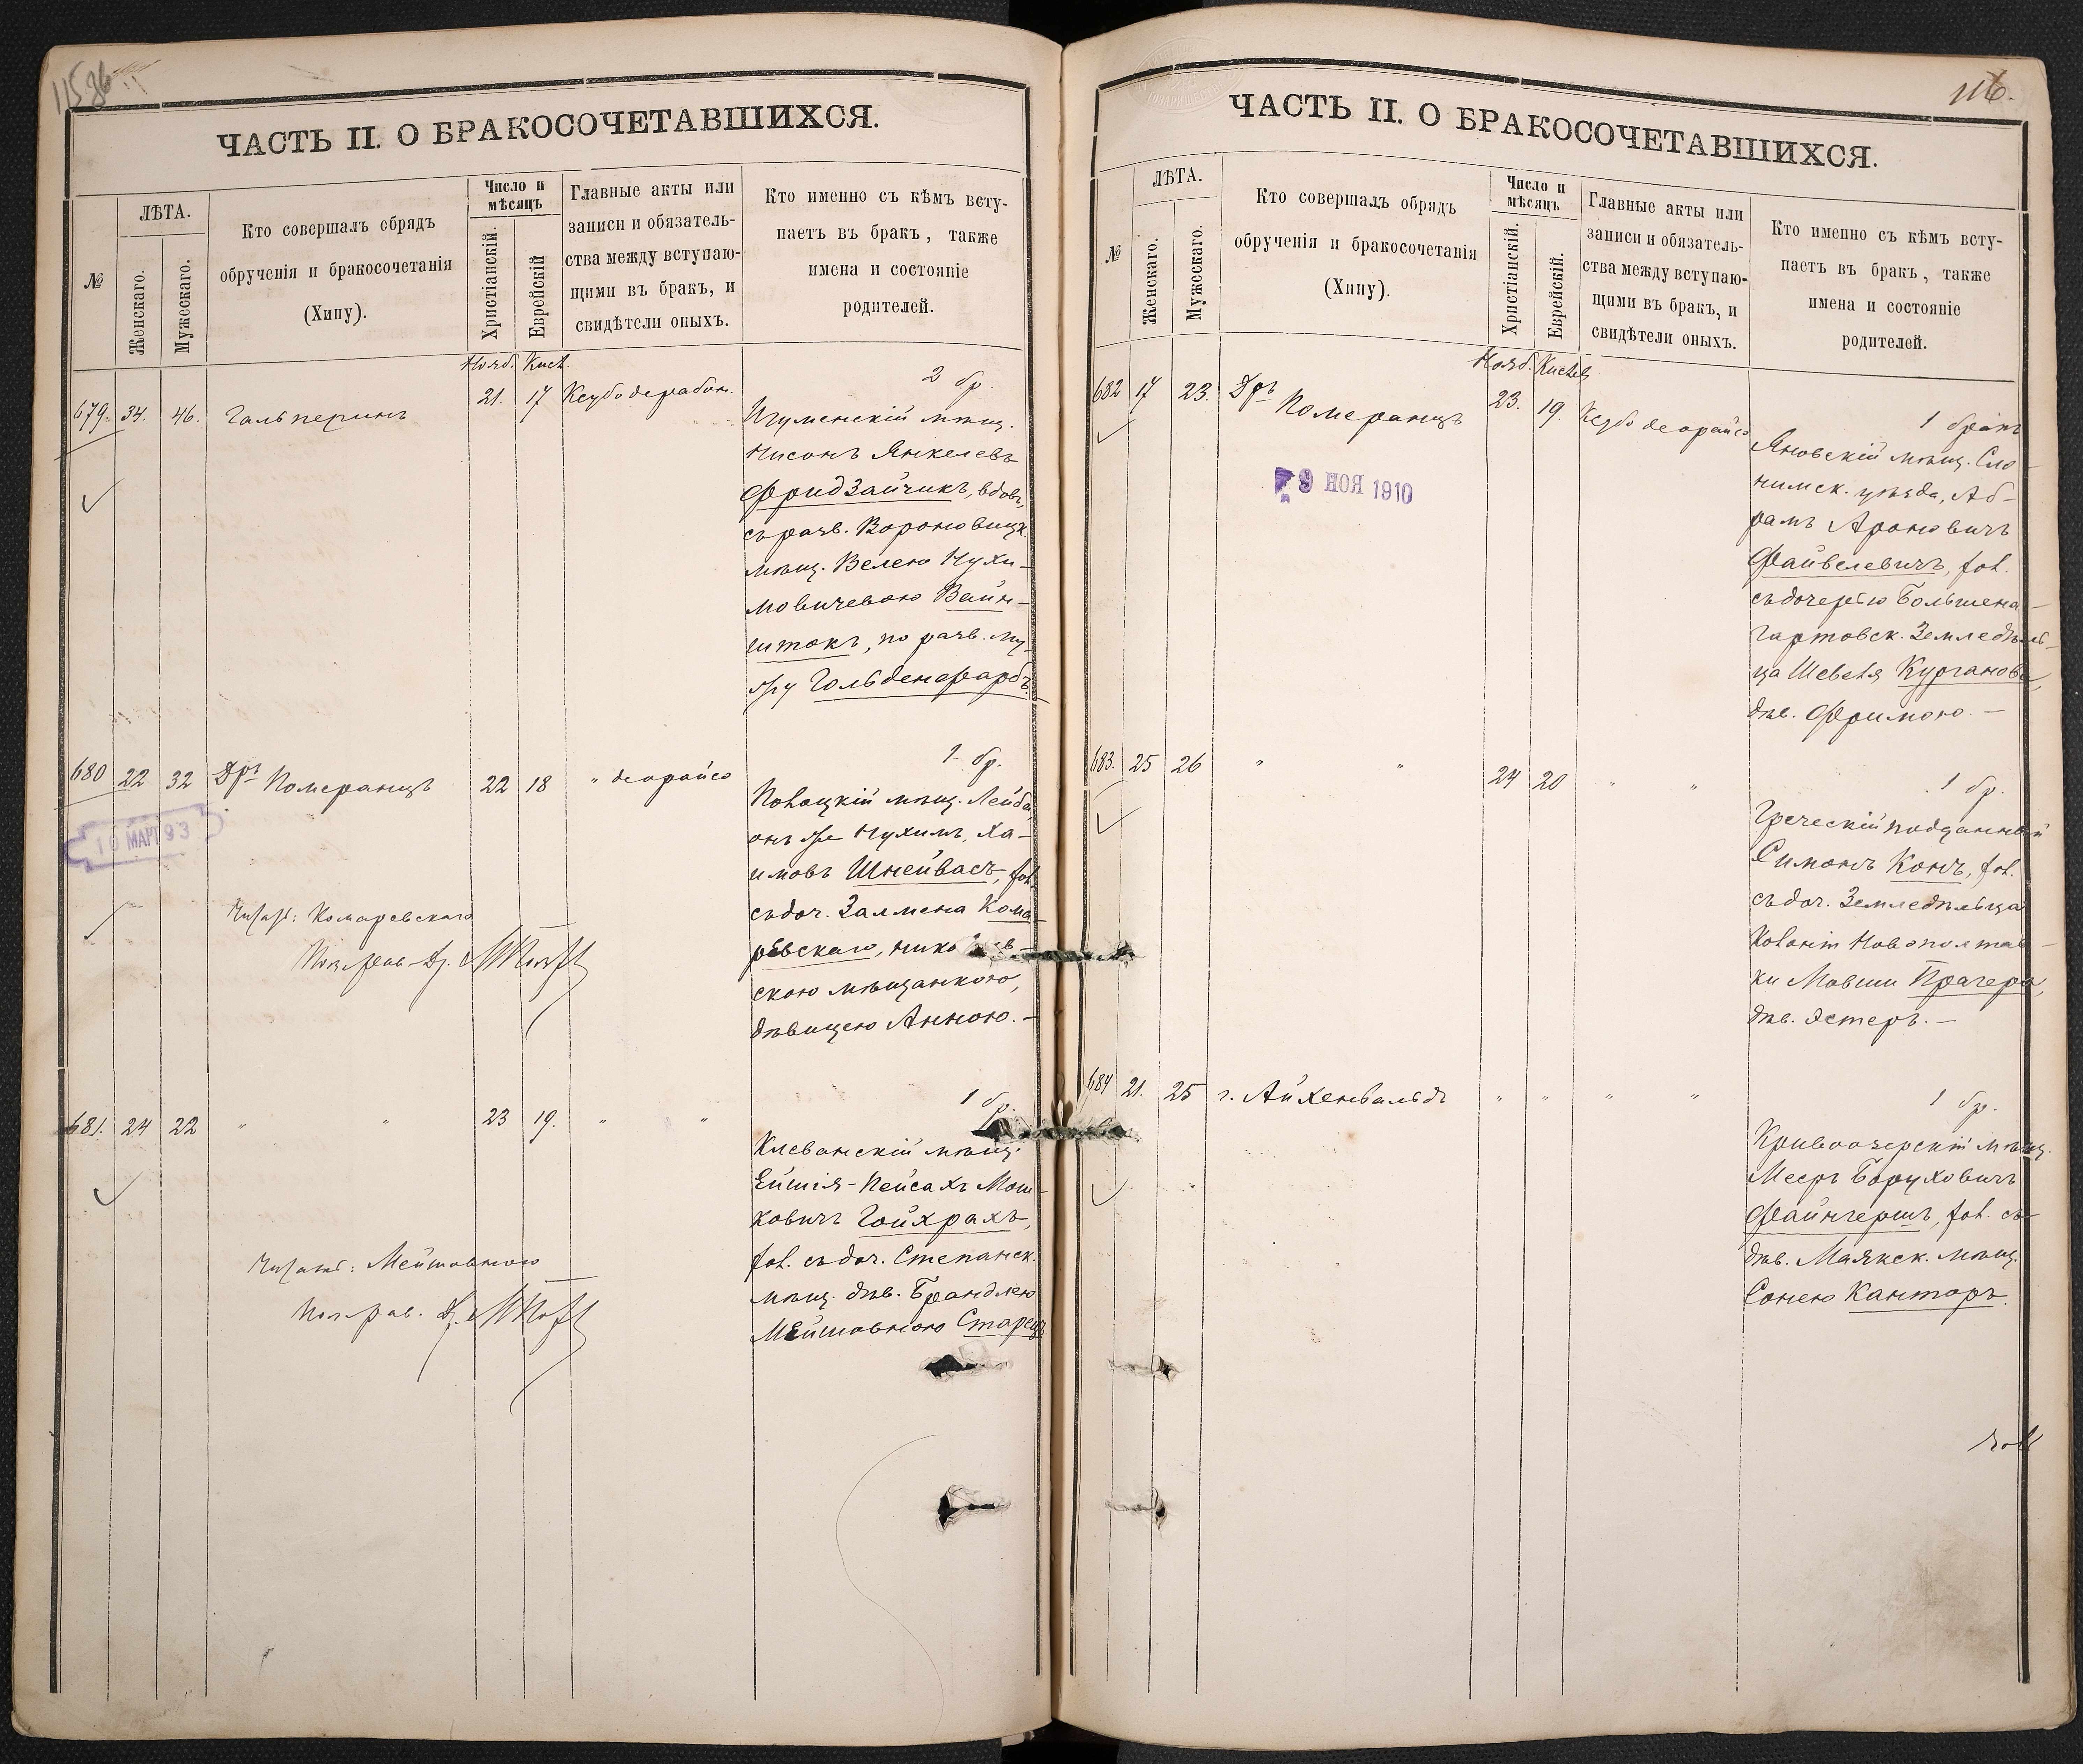 ЧАСТЬ II. О БРАКОСОЧЕТАВШИХСЯ.
№
ЛѢТА.
Женскаго.
Мужескаго.
Кто совершалъ обрядъ
обрученія и бракосочетанія
(Хипу).
Число и
мѣсяцъ
Христіанскій.
Еврейскій
Главные акты или
записи и обязатель-
ства между вступаю-
щими въ бракъ, и
свидѣтели оныхъ.
Кто именно съ кѣмъ всту-
паетъ въ бракъ, также
имена и состояніе
родителей.
Нояб. Кисл.
679. 34. 46. Гальперинъ 21. 17 Ксубо дерабон.
2 бр.
Игуменскій мѣщ.
Нисонъ Янкелевъ
Фридзайчикъ, вдов.,
съ разв. Вороновицк.
мѣщ. Велею Нухи-
мовичевою Вайн-
штокъ, по разв. му-
жу Гольденфарбъ.
680 22 32 Дръ Померанцъ 22 18 " деорайсо
10 МАРТ 93
1 бр.
Полоцкій мѣщ. Лейба,
онъ же Нухимъ, Ха-
имовъ Шнейвасъ, хол.
съ доч. Залмена Кома-
ревскаго, нико
скою мѣщанкою,
дѣвицею Анною. -
Комаревскаго
681. 24 22 " " 23 19. " "
1 бр.
Клеванскій мѣщ.
Ейшія-Пейсахъ Мош-
ковичъ Гойхрахъ,
хол. съ доч. Степанск.
мѣщ. дѣв. Брандлею
Мейшовною Старец
Мейшовною
116.
ЧАСТЬ II. О БРАКОСОЧЕТАВШИХСЯ.
№
ЛѢТА.
Женскаго.
Мужескаго.
Кто совершалъ обрядъ
обрученія и бракосочетанія
(Хипу).
Число и
мѣсяцъ
Христіанскій.
Еврейскій.
Главные акты или
записи и обязатель-
ства между вступаю-
щими въ бракъ, и
свидѣтели оныхъ.
Кто именно съ кѣмъ всту-
паетъ въ бракъ, также
имена и состояніе
родителей.
Нояб. Кислев
682 17 23. Дръ Померанцъ 23. 19. Ксубо деорайсо
9 НОЯ 1910
1 бракъ
Яновскій мѣщ. Сло-
нимск. уѣзда, Аб-
рамъ Ароновичъ
Файвелевичъ, хол.
съ дочерью Большена-
гартовск. Земледѣль-
ца Шевеля Курганова,
дѣв. Фримою. -
683. 25 26 " " 24 20 " "
1 бр.
Греческій подданный
Симонъ Конъ, хол.
съ доч. Земледѣльца
колоніи Новополтав-
ки Мовши Прагера,
дѣв. Эстеръ. -
684 21. 25 г. Айхенвальдъ " " " "
1 бр.
Кривоозерскій мѣщ.
Мееръ Боруховичъ
Файнгершъ, хол. съ
дѣв. Маякск. мѣщ.
Сонею Канторъ.